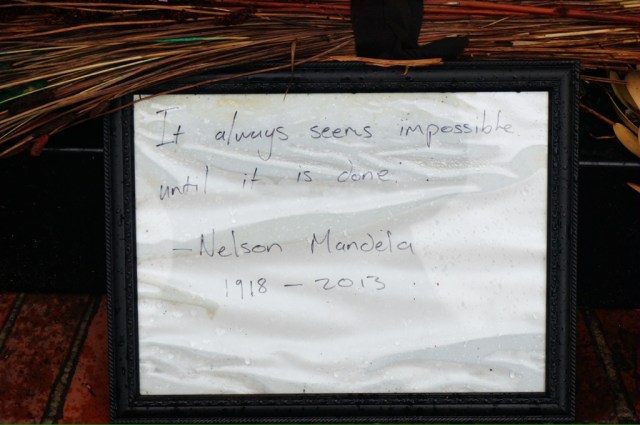 It always seems impossible
until it is done. .
- Nelson Mandela
1918 - 2013 . .